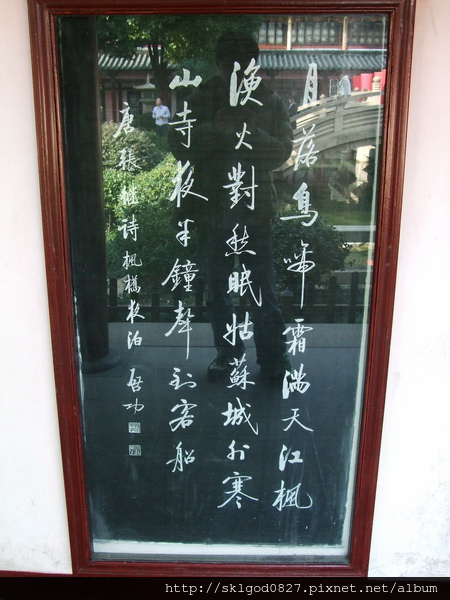 月落烏啼霜满天江楓
漁火對愁眠姑蘇城外寒
山寺夜半鐘聲到客船
唐張继诗楓橋夜泊 启功
http://sklgod0827.pixnet.net/album